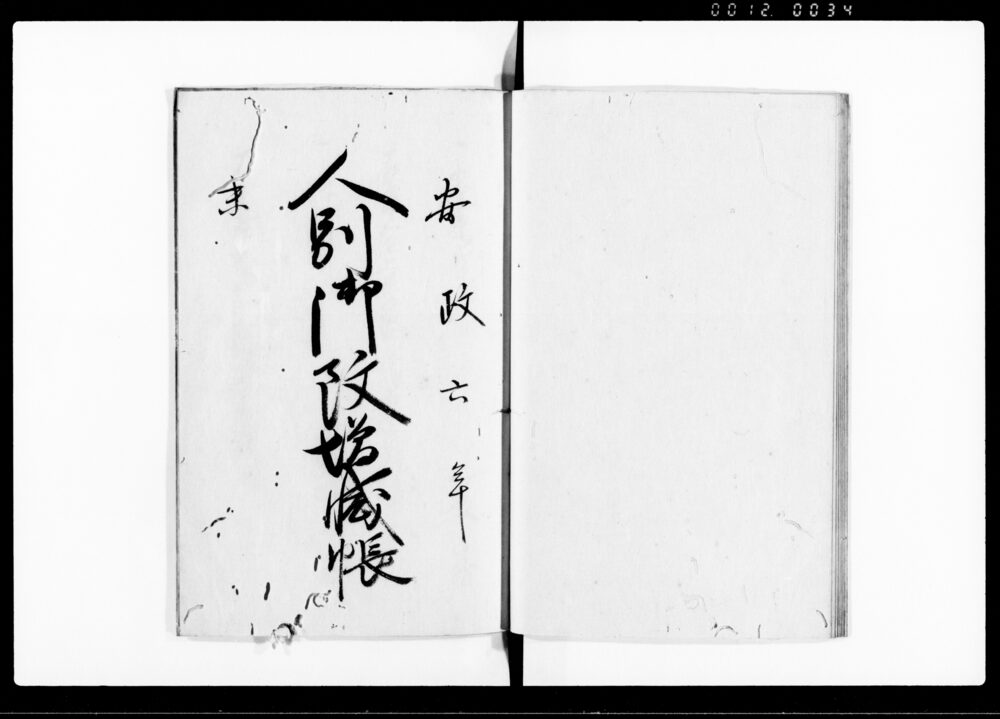 0012. 0034
安政六年
人別御改増減帳
未